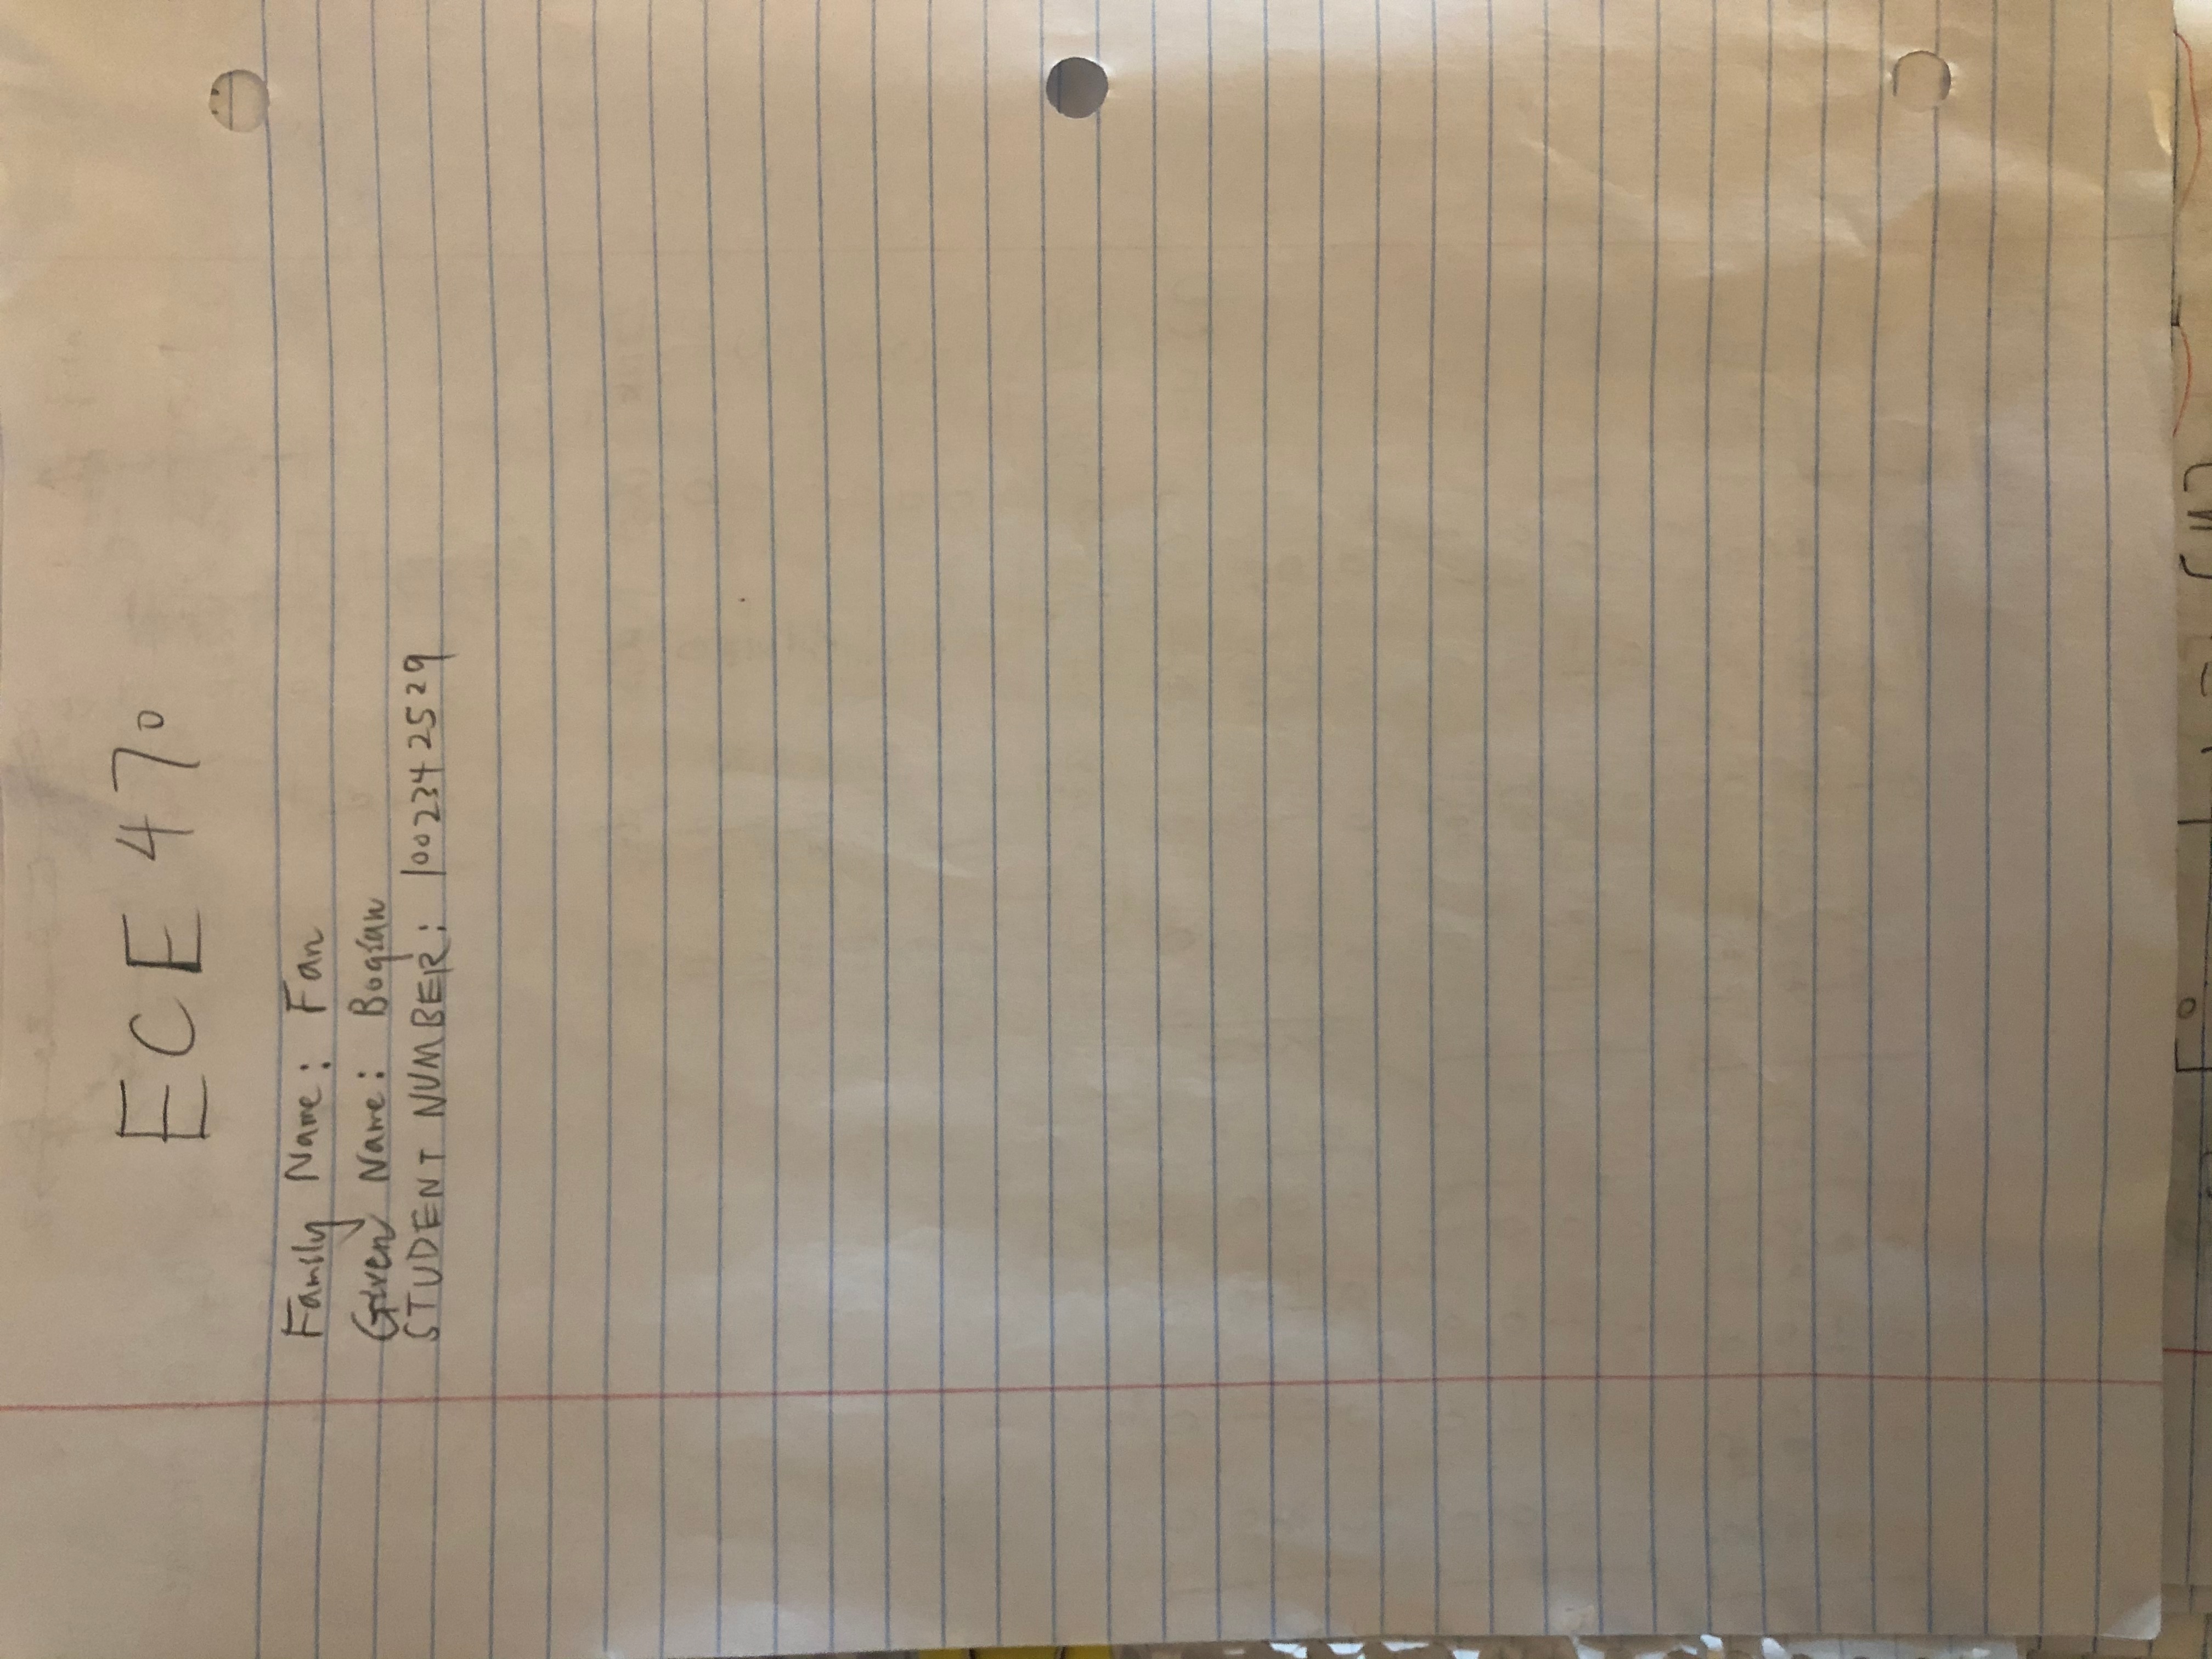 ECE 470
Family Name: Fan
Given Name: Boqian
STUDENT NUMBER: 1002342529